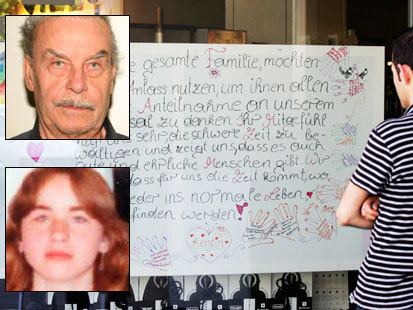 gesamte Familie, möchten
Anlass nutzen, um ihnen allen
Anteilnahme an unserem
sal zu denken. Ihr Mitgefühl
sehr die schwere Zeit zu be-
wältigen und zeigt uns, dass es auch
gute und ehrliche Menschen gibt. Wir
dass für uns die Zeit kommt, wo
eder ins normale Leben
finden werden!
Kerstin